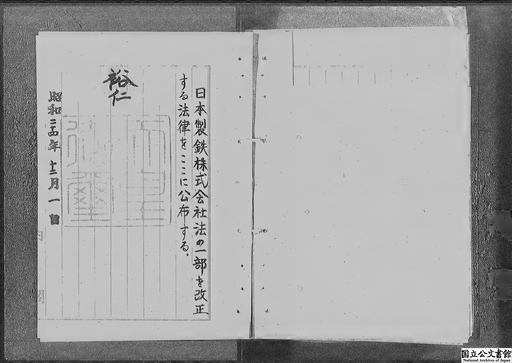 日本製鉄株式会社法の一部を改正
する法律をここに公布する。
裕仁
昭和二四年十二月一日
国立公文書館
National Archives of Japan